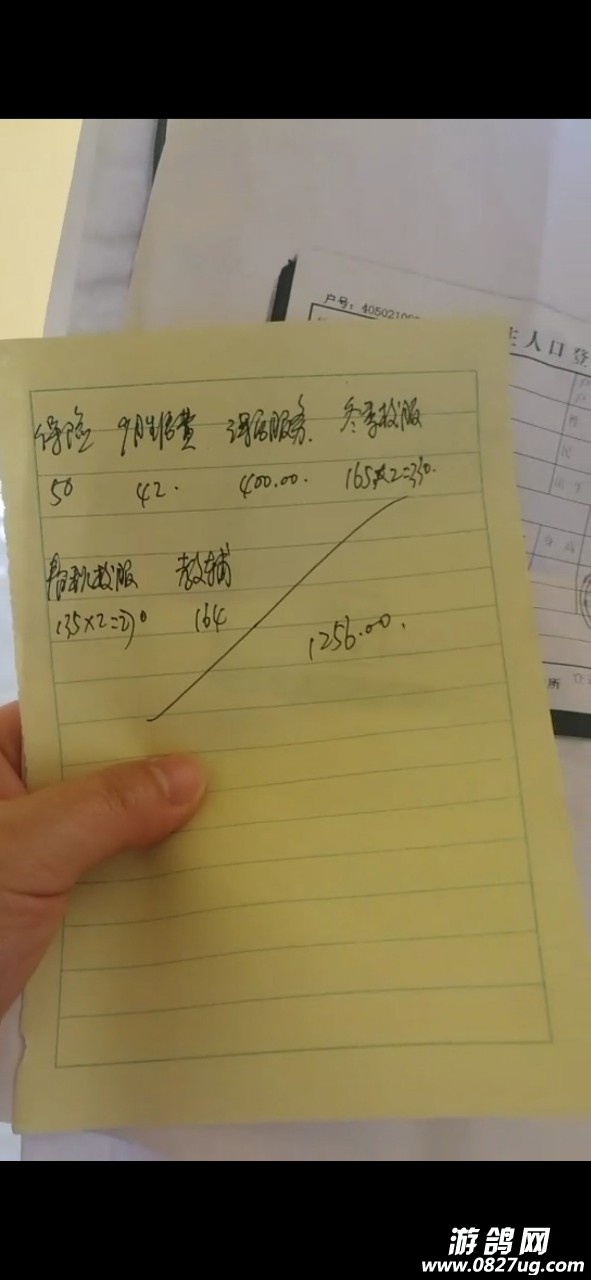 户号：405021
主人口登
保险 9月生活费 课后服务. 冬季校服
50 42. 400.00. 165×2=330.
春秋校服 教辅
135×2=270 164
1256.00.
所
游鸽网
www.0827ug.com